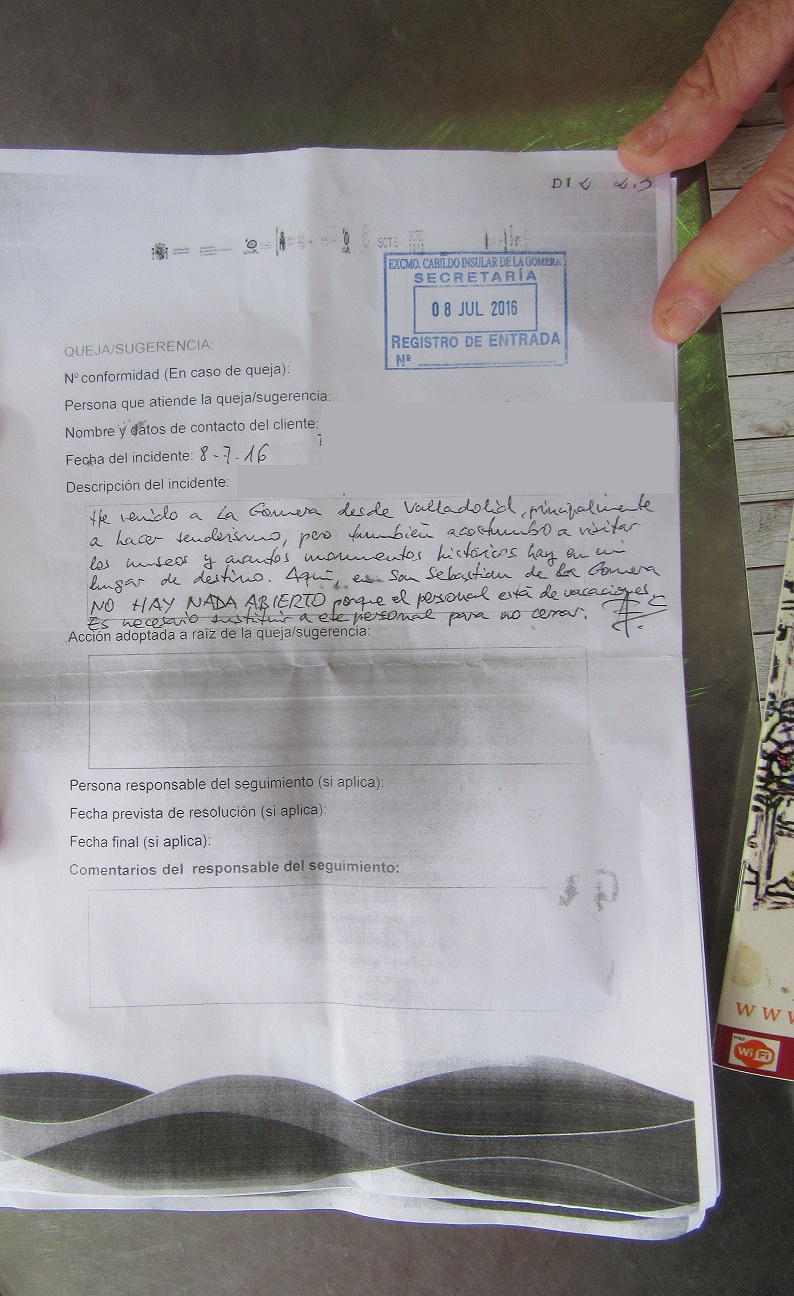 SCTE
EXCMO. CABILDO INSULAR DE LA GOMERA
SECRETARÍA
08 JUL 2016
REGISTRO DE ENTRADA
Nº
QUEJA/SUGERENCIA:
Nº conformidad (En caso de queja):
Persona que atiende la queja/sugerencia:
Nombre y datos de contacto del cliente:
Fecha del incidente: 8-7-16
Descripción del incidente:
He venido a La Gomera desde Valladolid, principalmente
a hacer senderismo, pero también acostumbro a visitar
los museos y cuantos monumentos históricos hay en mi
lugar de destino. Aquí, en San Sebastian de La Gomera
NO HAY NADA ABIERTO porque el personal está de vacaciones.
Es necesario sustituir a ese personal para no cerrar.
Acción adoptada a raíz de la queja/sugerencia:
Persona responsable del seguimiento (si aplica):
Fecha prevista de resolución (si aplica):
Fecha final (si aplica):
Comentarios del responsable del seguimiento:
WWW
FREE
Wi Fi